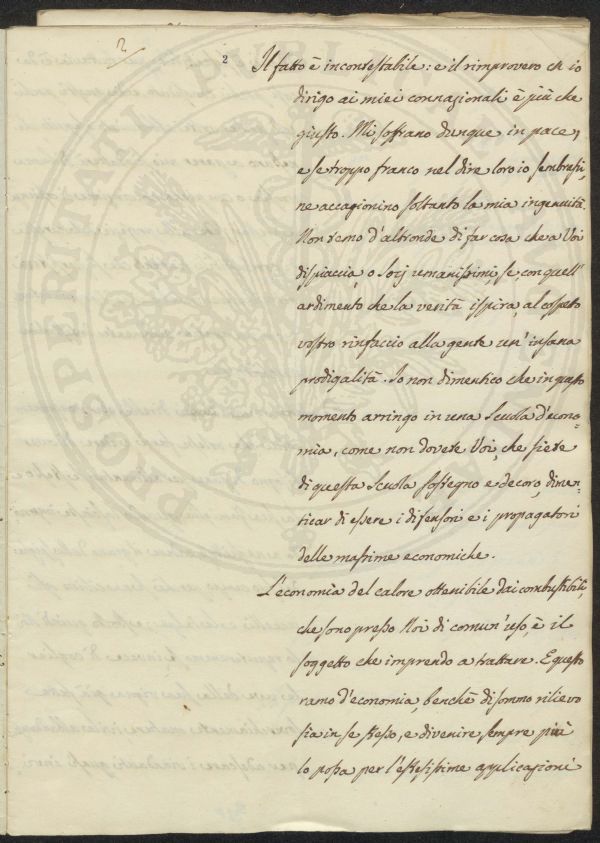 2 2
Il fatto è incontestabile: e il rimprovero ch io
dirigo ai miei connazionali è più che
giusto. Mi soffrano dunque in pace,
e se troppo franco nel dire loro io sembrassi,
ne accagionino soltanto la mia ingenuità.
Non temo d'altronde di far cosa che a Voi
dispiaccia, o Socj umanissimi, se, con quell'
ardimento che la verità ispira, al cospetto
vostro rinfaccio alla gente un' insana
prodigalità. Io non dimentico che in questo
momento arringo in una Scuola d'econo=
mia, come non dovete Voi, che siete
di questa Scuola sostegno e decoro, dimen=
ticar di essere i difensori e i propagatori
delle massime economiche.
L'economia del calore ottenibile dai combustibili,
che sono presso Noi di comun' uso, è il
soggetto che imprendo a trattare. E questo
ramo d'economia, benchè di sommo rilievo
sia in se stesso, e divenire sempre più
lo possa per l'estesissime applicazioni